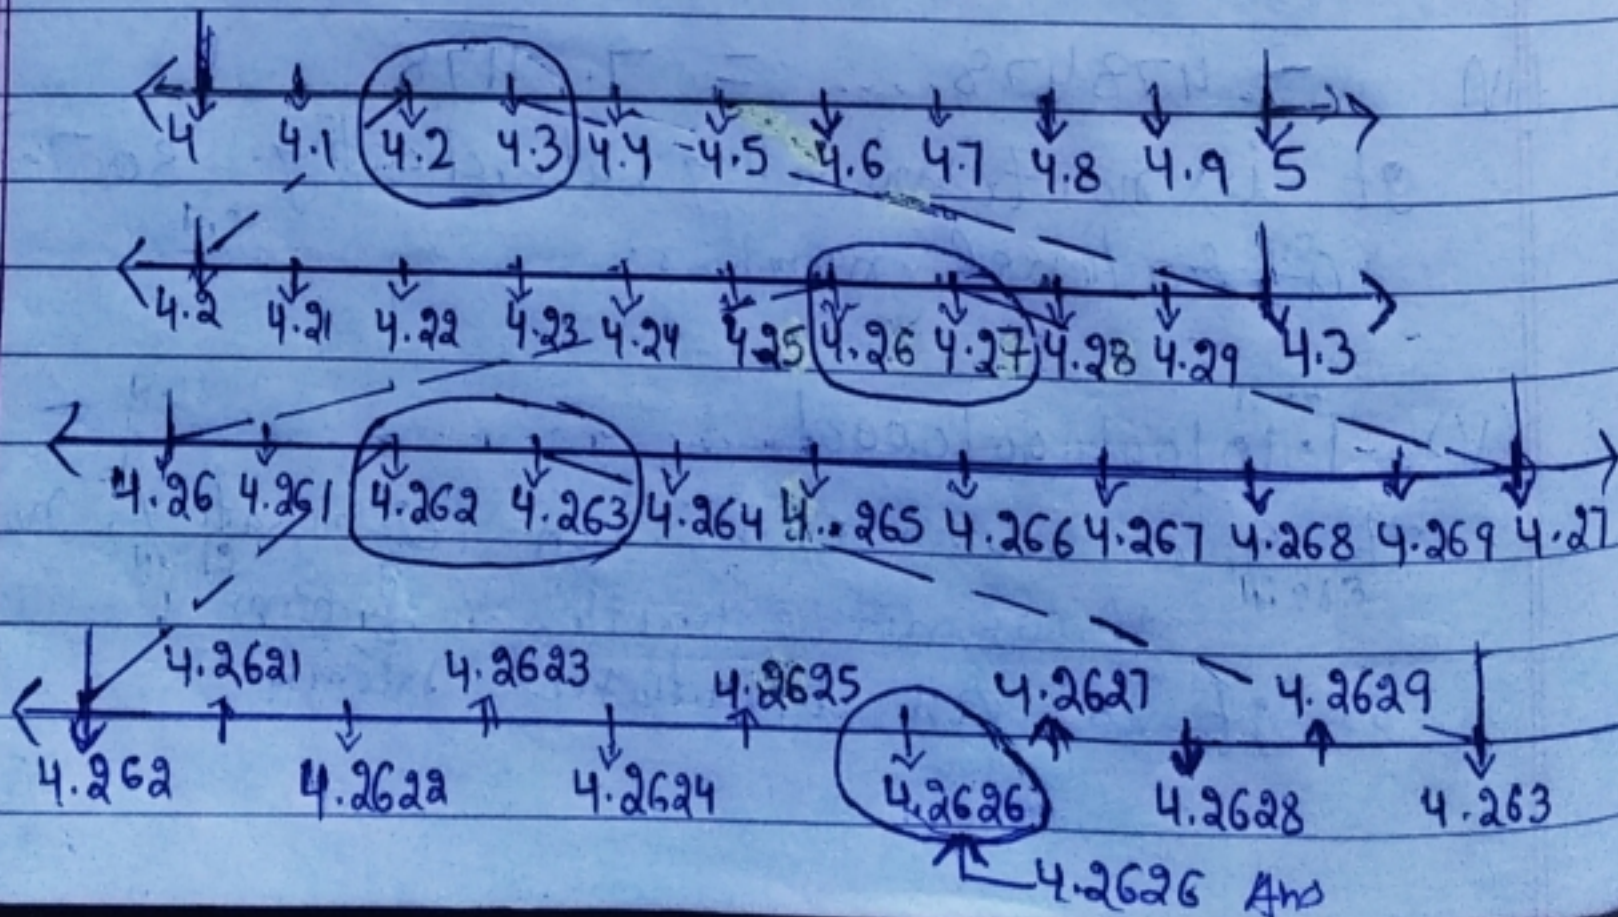 4 4.1 4.2 4.3 4.4 4.5 4.6 4.7 4.8 4.9 5
4.2 4.21 4.22 4.23 4.24 4.25 4.26 4.27 4.28 4.29 4.3
4.26 4.261 4.262 4.263 4.264 4..265 4.266 4.267 4.268 4.269 4.27
4.2621 4.2623 4.2625 4.2627 4.2629
4.262 4.2622 4.2624 4.2626 4.2628 4.263
4.2626 Ans